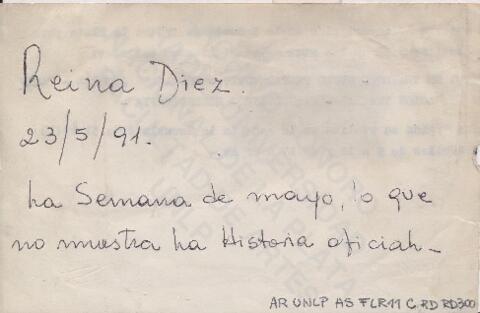 Reina Diez.
23/5/91.
La Semana de mayo, lo que
no muestra La Historia oficial_
AR UNLP AS FLR11 C RD RD300